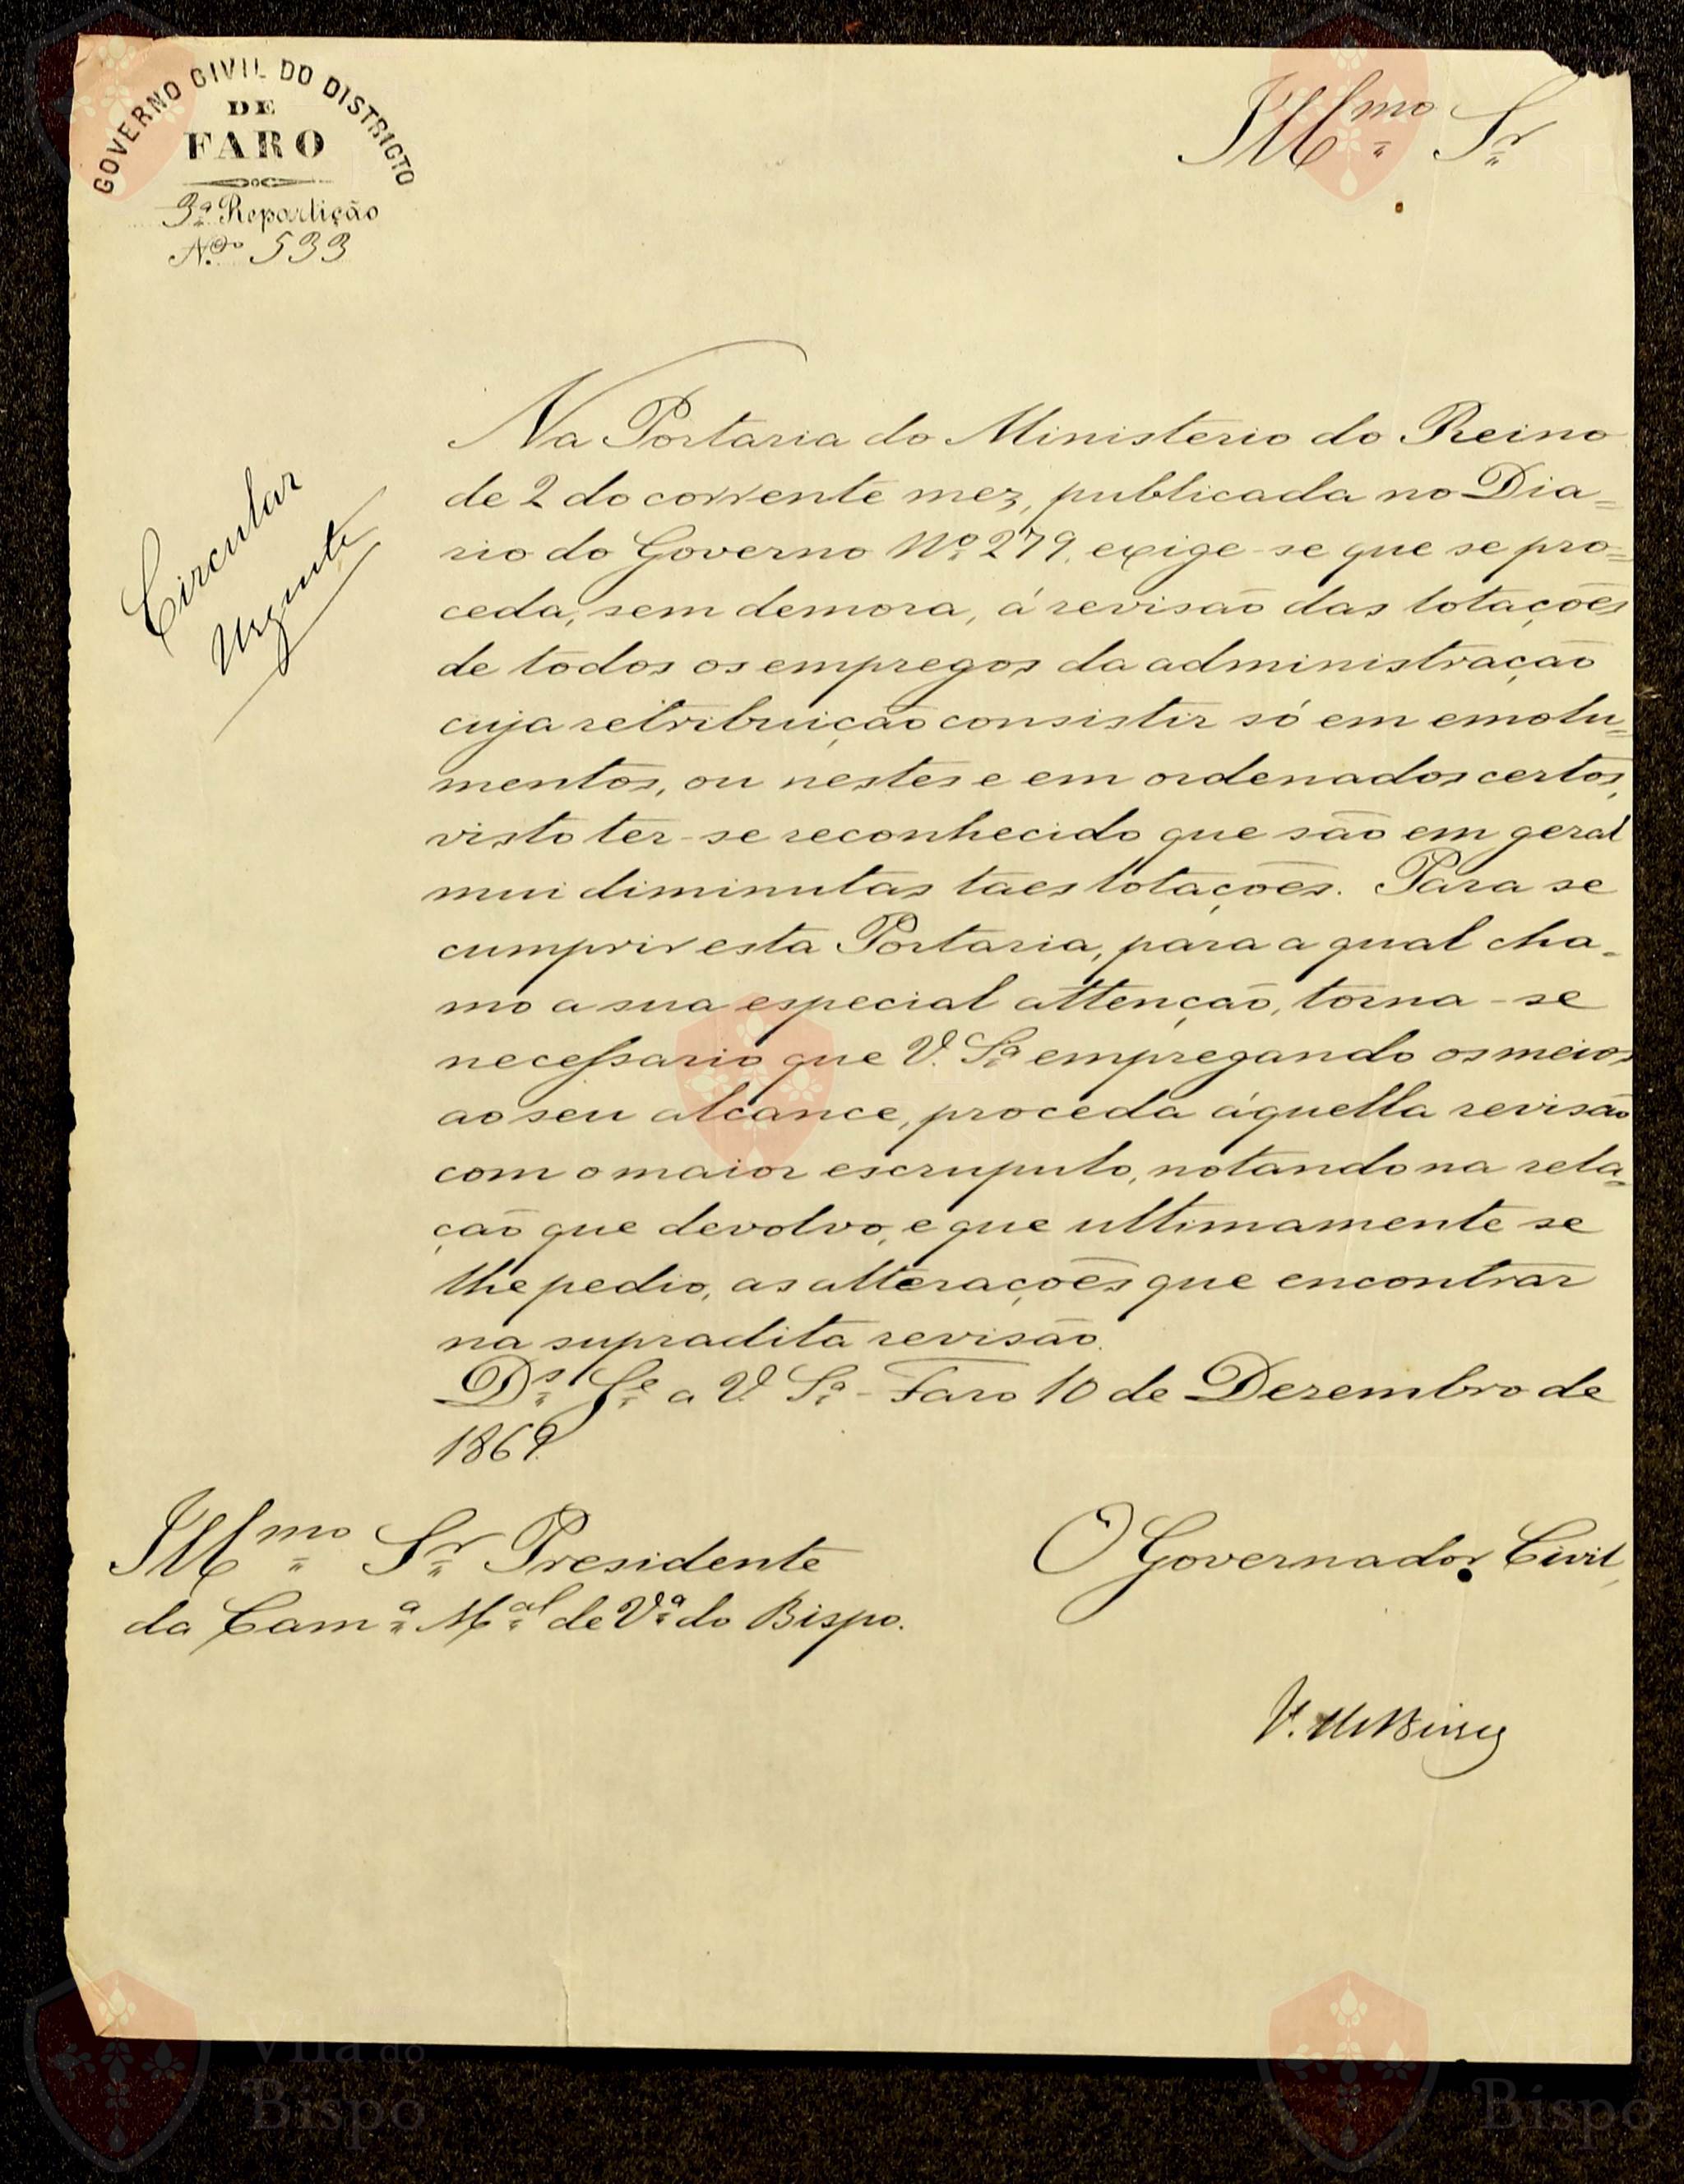 GOVERNO CIVIL DO DISTRICTO
DE
FARO
3ª Repartição
N.º 533
Illmo Sr
Circular
Urgente
Na Portaria do Ministerio do Reino
de 2 do corrente mez, publicada no Dia=
rio do Governo Nº 279, exige-se que se pro=
ceda, sem demora, á revisão das lotações
de todos os empregos da administração
cuja retribuição consistir só em emolu=
mentos, ou nestes e em ordenados certos,
visto ter-se reconhecido que são em geral
mui diminutas taes lotações. Para se
cumprir esta Portaria, para a qual cha=
mo a sua especial attenção, torna-se
necessario que V. Sª empregando os meios
ao seu alcance, proceda áquella revisão
com o maior escrupulo, notando na rela=
ção que devolvo, e que ultimamente se
lhe pedio, as alterações que encontrar
na supradita revisão.
Ds Ge a V. Sª - Faro 10 de Dezembro de
1869
Illmo Sr Presidente
da Camª Mal de Vª do Bispo.
O Governador Civil,
Vila do
Bispo
Bispo